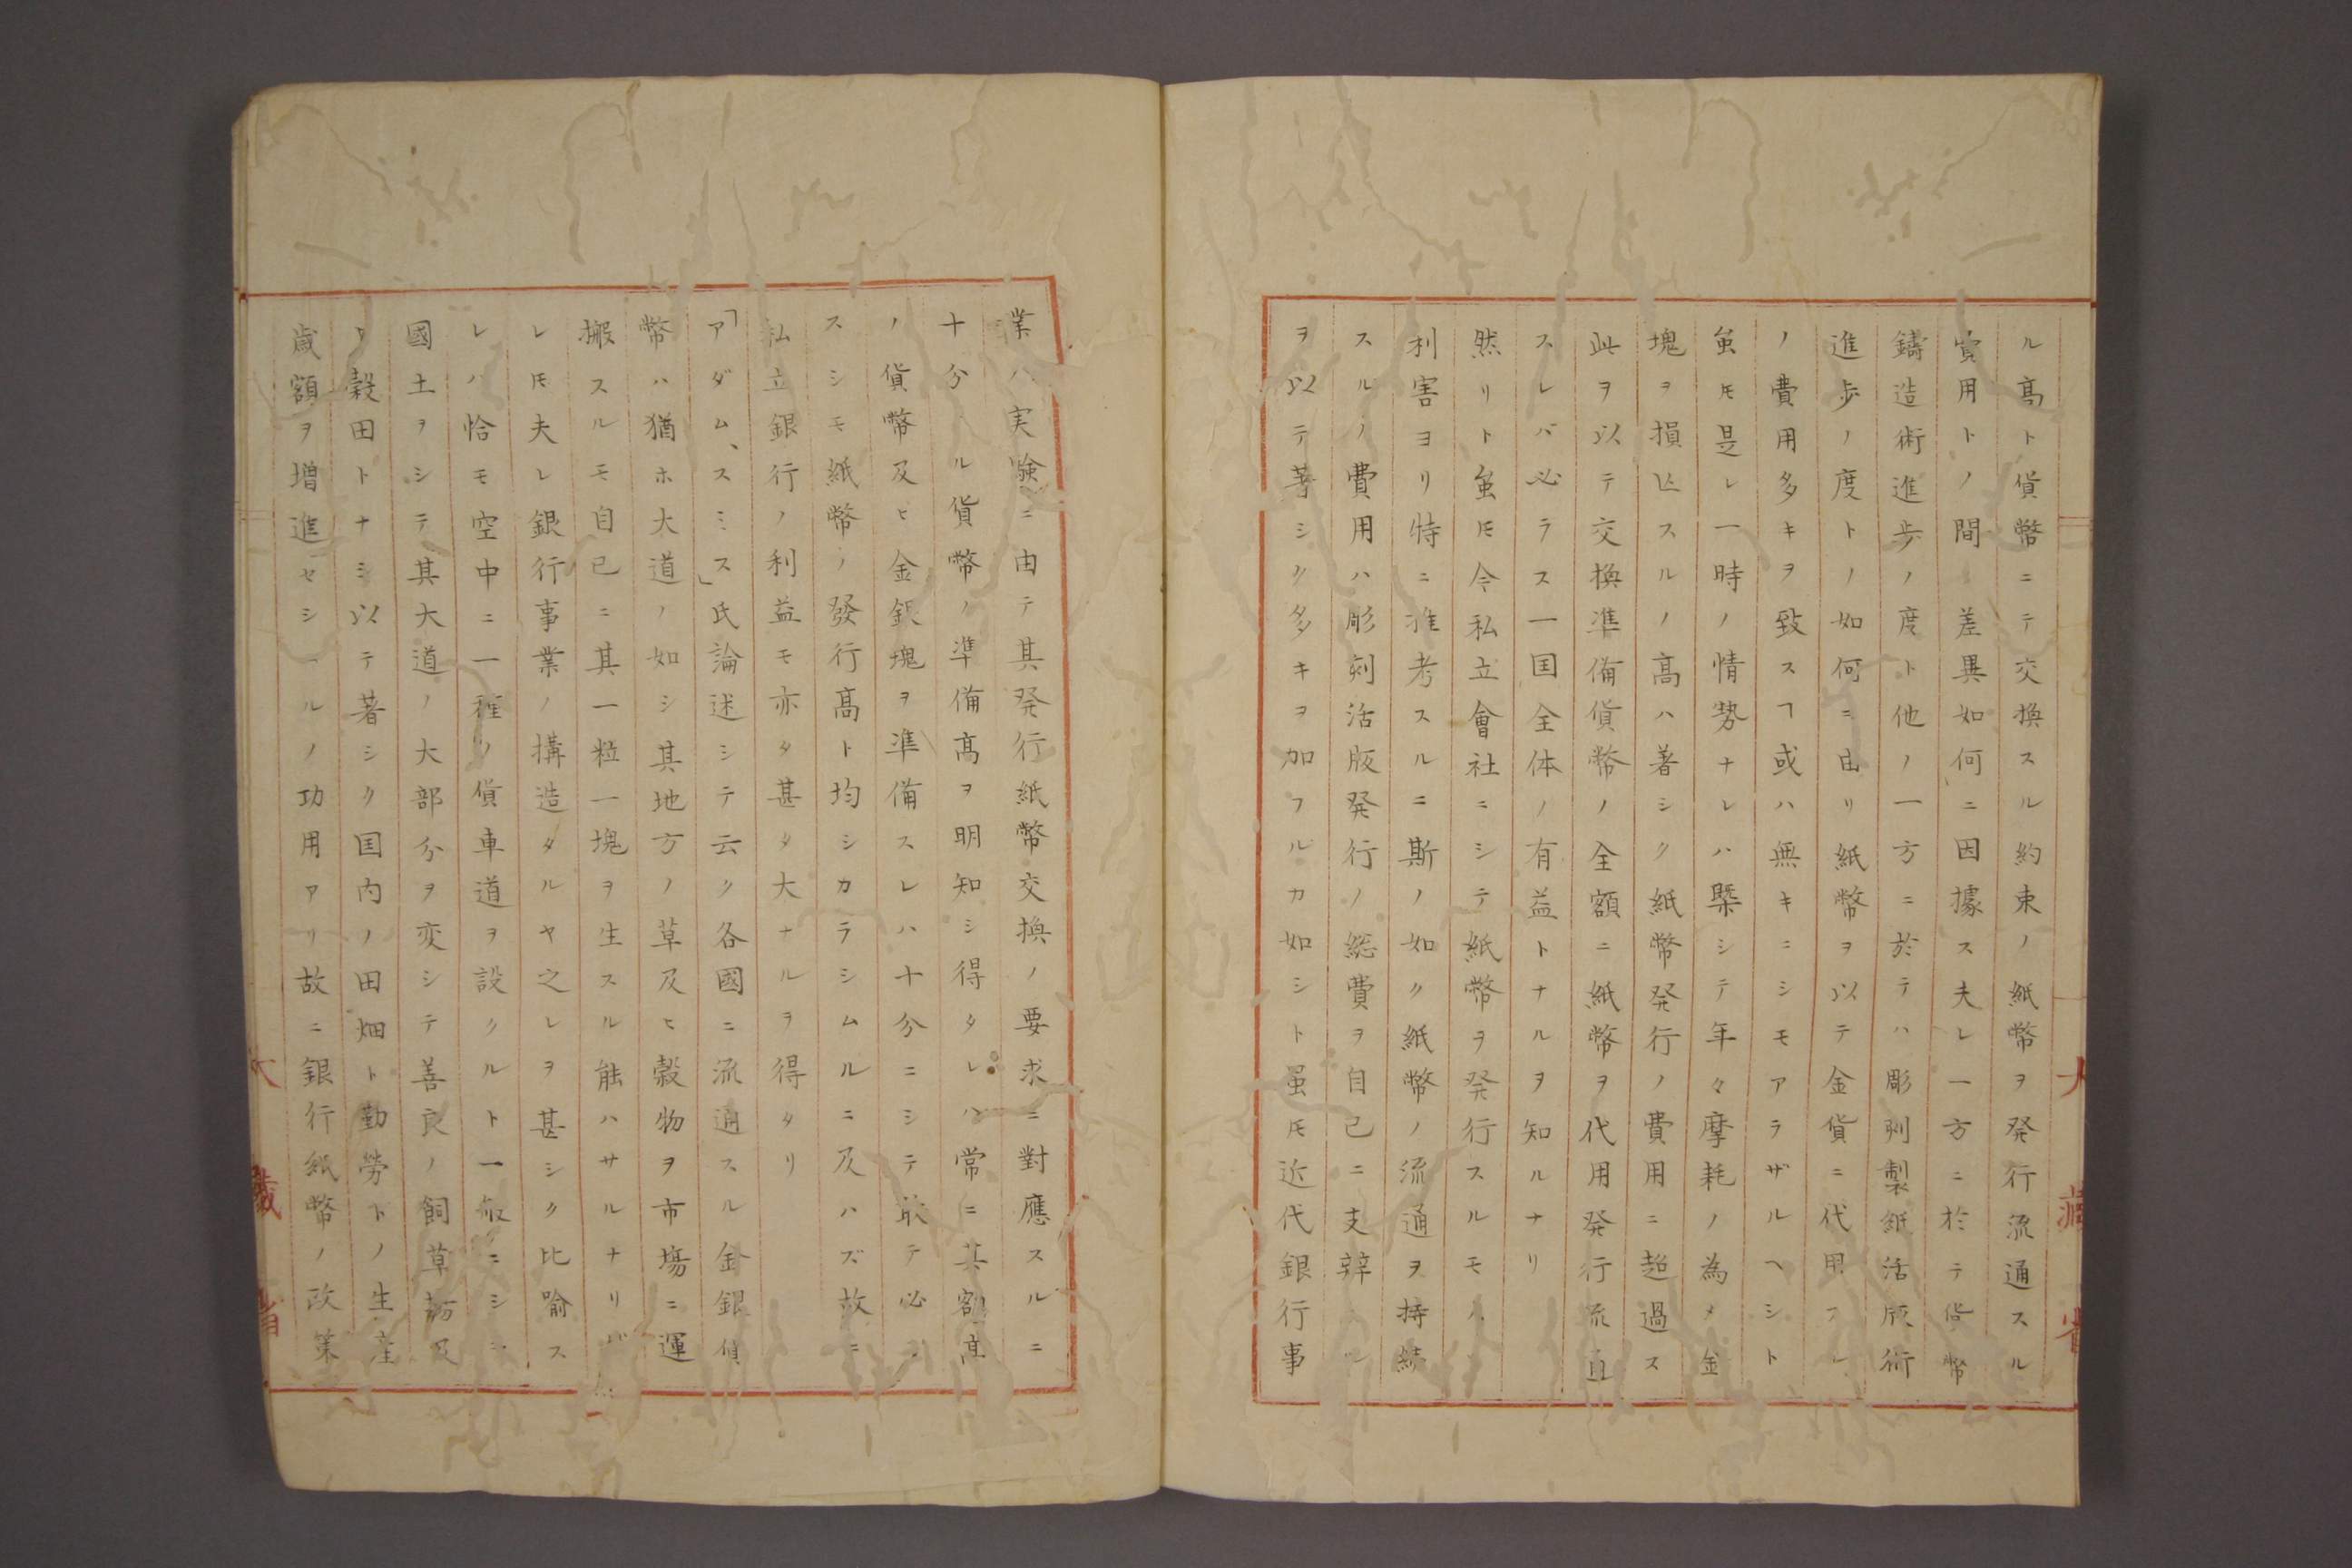 ル高ト貨幣ニテ交換スル約束ノ紙幣ヲ発行流通スル
實用トノ間ノ差異如何ニ因據ス夫レ一方ニ於テ貨幣
鑄造術進歩ノ度ト他ノ一方ニ於テハ彫刻製紙活版術
進歩ノ度トノ如何ニ由リ紙幣ヲ以テ金貨ニ代用スレ
ノ費用多キヲ致スヿ或ハ無キニシモアラザルヘシト
虽𪜈是レ一時ノ情勢ナレハ槩シテ年々摩耗ノ為メ金
塊ヲ損亡スルノ高ハ著シク紙幣発行ノ費用ニ超過ス
此ヲ以テ交換準備貨幣ノ全額ニ紙幣ヲ代用発行流通
スレバ必ラス一国全体ノ有益トナルヲ知ルナリ
然リト虽𪜈今私立會社ニシテ紙幣ヲ発行スルモノヽ
利害ヨリ特ニ推考スルニ斯ノ如ク紙幣ノ流通ヲ持続
スルノ費用ハ彫刻活版発行ノ総費ヲ自己ニ支辨スル
ヲ以テ著シク多キヲ加フルカ如シト虽𪜈近代銀行事
業ハ実験ニ由テ其発行紙幣交換ノ要求ニ對應スルニ
十分ナル貨幣ノ準備高ヲ明知シ得タレハ常ニ其額高
ノ貨幣及ヒ金銀塊ヲ準備スレハ十分ニシテ敢テ必ラ
スシモ紙幣ノ發行高ト均シカラシムルニ及ハズ故ニ
私立銀行ノ利益モ亦タ甚タ大ナルヲ得タリ
「アダム、スミス」氏論述シテ云ク各國ニ流通スル金銀貨
幣ハ猶ホ大道ノ如シ其地方ノ草及ヒ穀物ヲ市場ニ運
搬スルモ自己ニ其一粒一塊ヲ生スル能ハサルナリ
レ𪜈夫レ銀行事業ノ搆造タルヤ之レヲ甚シク比喩ス
レハ恰モ空中ニ一種ノ貨車道ヲ設クルト一般ニシテ
國土ヲシテ其大道ノ大部分ヲ変シテ善良ノ飼草場及
ヒ穀田トナシ以テ著シク国内ノ田畑ト勤勞トノ生産
歳額ヲ増進セシムルノ功用アリ故ニ銀行紙幣ノ政策
大藏省